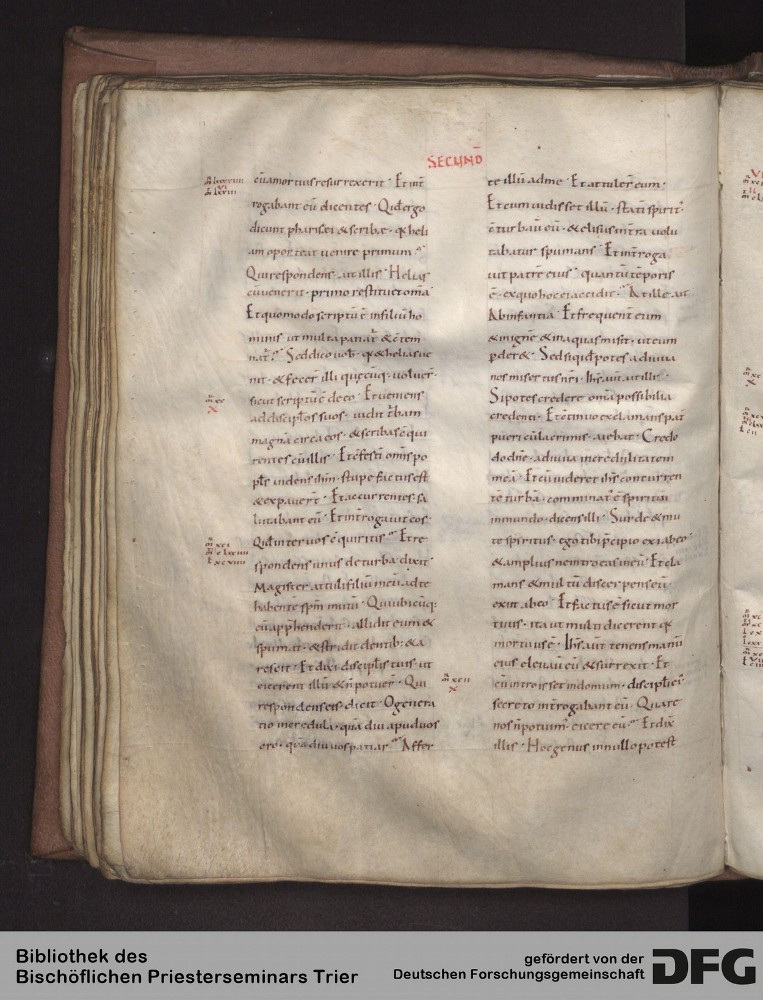 SECUND̄
cū a mortuis resurrexerit · Et int̄
rogabant eū dicentes · Qd̄ ergo
dicunt pharisei & scribae · q̄ heli
am oporteat venire primum
Qui respondens · ait illis · Helias
cū venerit · primo restituet om̄a
Et quomodo scriptū ē in filiū ho
minis ut multa patiat̄ & cōtem
nat̄ · Sed dico vob̄ · q̄ & helias ve
nit · & fecer̄ illi quęcūq · voluer̄
sicut scriptū ē de eo · Et veniens
ad discipl̄os suos · vidit t̄bam
magnā circa eos · & scribas cōqui
rentes cū illis · Et cōfestī omīs po
pl̄s videns ihm̄ · stupefactus est
& expaver̄t · Et accurrentes sa
lutabant eū · Et int̄rogavit eos ·
Qd̄ inter vos cōquiritis · Et re
spondens unus de turba · dixit ·
Magister attuli filiū meū ad te
habente sp̄m mutū · Qui ubicūq:
eū app̄henderit · allidit eum &
spumat · & stridit dentib: & a
rescit · Et dixi discipl̄is tuis · ut
eicerent illū & n̄ potuer̄ · Qui
respondens eis · dicit · O genera
tio incredula · quādiu apud vos
ero · quādiu vos patiar · Affer
te illū ad me · Et attuler̄ eum ·
Et cum vidisset illū · statī spirit̄
cōturbav̄ eū · & elisus in t̄ra volu
tabatur spumans · Et int̄roga
vit patrē eius · quantū tēporis
ē · ex quo hoc ei accidit · At ille ait
Ab infantia · Et frequent̄ eum
& in ignē & in aquas misit · ut eum
p̄der& · Sed si qid̄ potes adiuva
nos misertus nr̄i · Ihs̄ aūt ait illi ·
Si potes credere · om̄a possibilia
credenti · Et cōtinuo exclamans pat̄
pueri cū lacrimis · aiebat · Credo
dōdne · adiuva incredulitatem
meā · Et cū videret ihs̄ concurren
tē turbā · comminat̄ ē spiritui
inmundo · dicens illi · Surde & mu
te spiritus · ego tibi p̄cipio exi ab eo
& amplius ne introeas in eū · Et cla
mans & multū discerpens eū ·
exiit ab eo · Et factus ē sicut mor
tuus · ita ut multi dicerent q̄
mortuus ē · Ihs̄ aūt tenens manū
eius elevav̄ eū & surrexit · Et
cū introisset in domum · discipl̄i ei'
secreto int̄rogabant eū · Quare
nos n̄ potuim̄ eicere eū · Et dix̄
illis · Hoc genus in nullo potest
Bibliothek des
Bischöflichen Priesterseminars Trier
gefördert von der
Deutschen Forschungsgemeinschaft
DFG